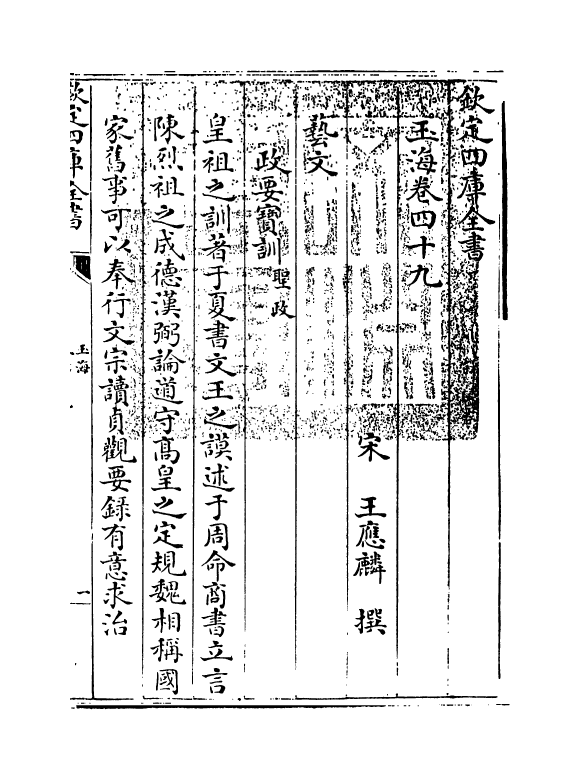 欽定四庫全書
玉海卷四十九
宋 王應麟 撰
藝文
政要寶訓聖政
皇祖之訓著于夏書文王之謨述于周命商書立言
陳烈祖之成德漢弼論道守髙皇之定規魏相稱國
家舊事可以奉行文宗讀貞觀要録有意求治
欽定四庫全書
玉海
一